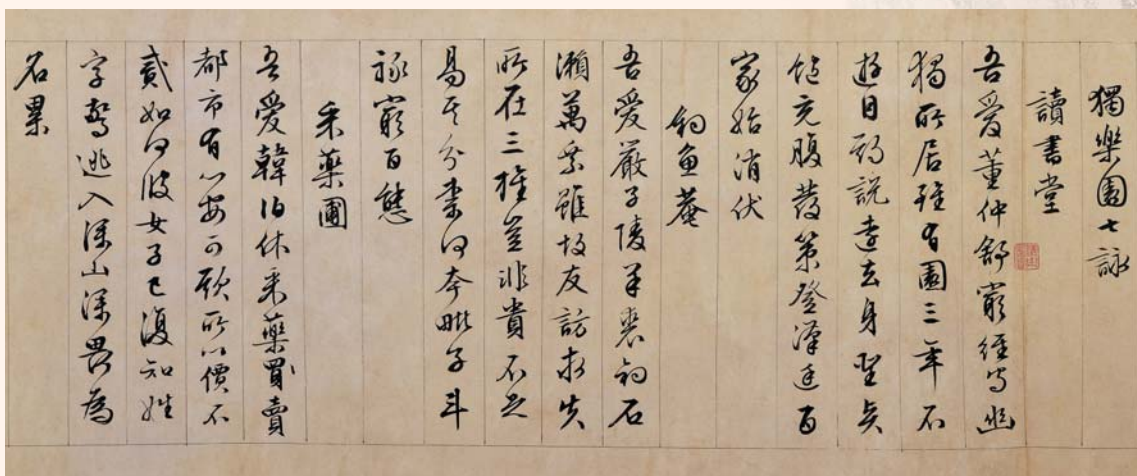 獨樂園七詠
讀書堂
吾愛董仲舒窮經守幽
獨所居雖有園三年不
遊目邪說遠去身聖言
飽充腹發策登漢廷百
家始消伏
釣魚菴
吾愛嚴子陵羊裘釣石
瀨萬乘雖故友訪求失
所在三旌豈非貴不足
易其介柰何夸毗子斗
祿窮百態
采藥圃
吾愛韓伯休采藥買賣
都市有心安可欺所以價不
貳如何彼女子已復知姓
字驚逃入深山深畏為
名累